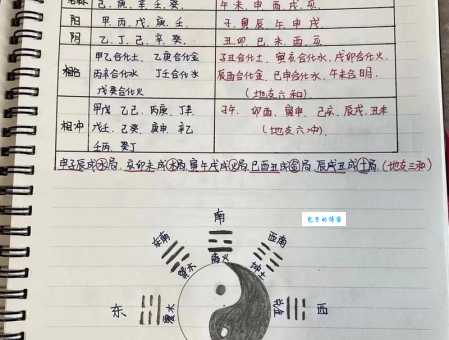 己、庚、辛、壬、癸 午、未、申、酉、戌、亥
阳 甲、丙、戊、庚、壬 子、寅、辰、午、申、戌
阴 乙、丁、己、辛、癸、 丑、卯、巳、未、酉、亥
相合 甲己合化土、乙庚合化金 子丑合化土、寅亥合化木、戌卯合化火
丙辛合化水 丁壬合化木 辰酉合化金、巳申合化水、午未合明、
戊癸合化火 (地支六和)
相冲 甲戊 乙己、丙庚、丁辛 子午、卯酉、寅申、巳亥、辰戌、丑未
戊壬、己癸、庚甲、辛乙 (地支六冲)
壬丙、癸丁
申子辰成水局、亥卯未成木局、寅午戌成火局、巳酉丑成金局、辰戌丑成土局、(地支三和)
南
东南 西南
巽木 离火 坤土
东 震木 兑金 西